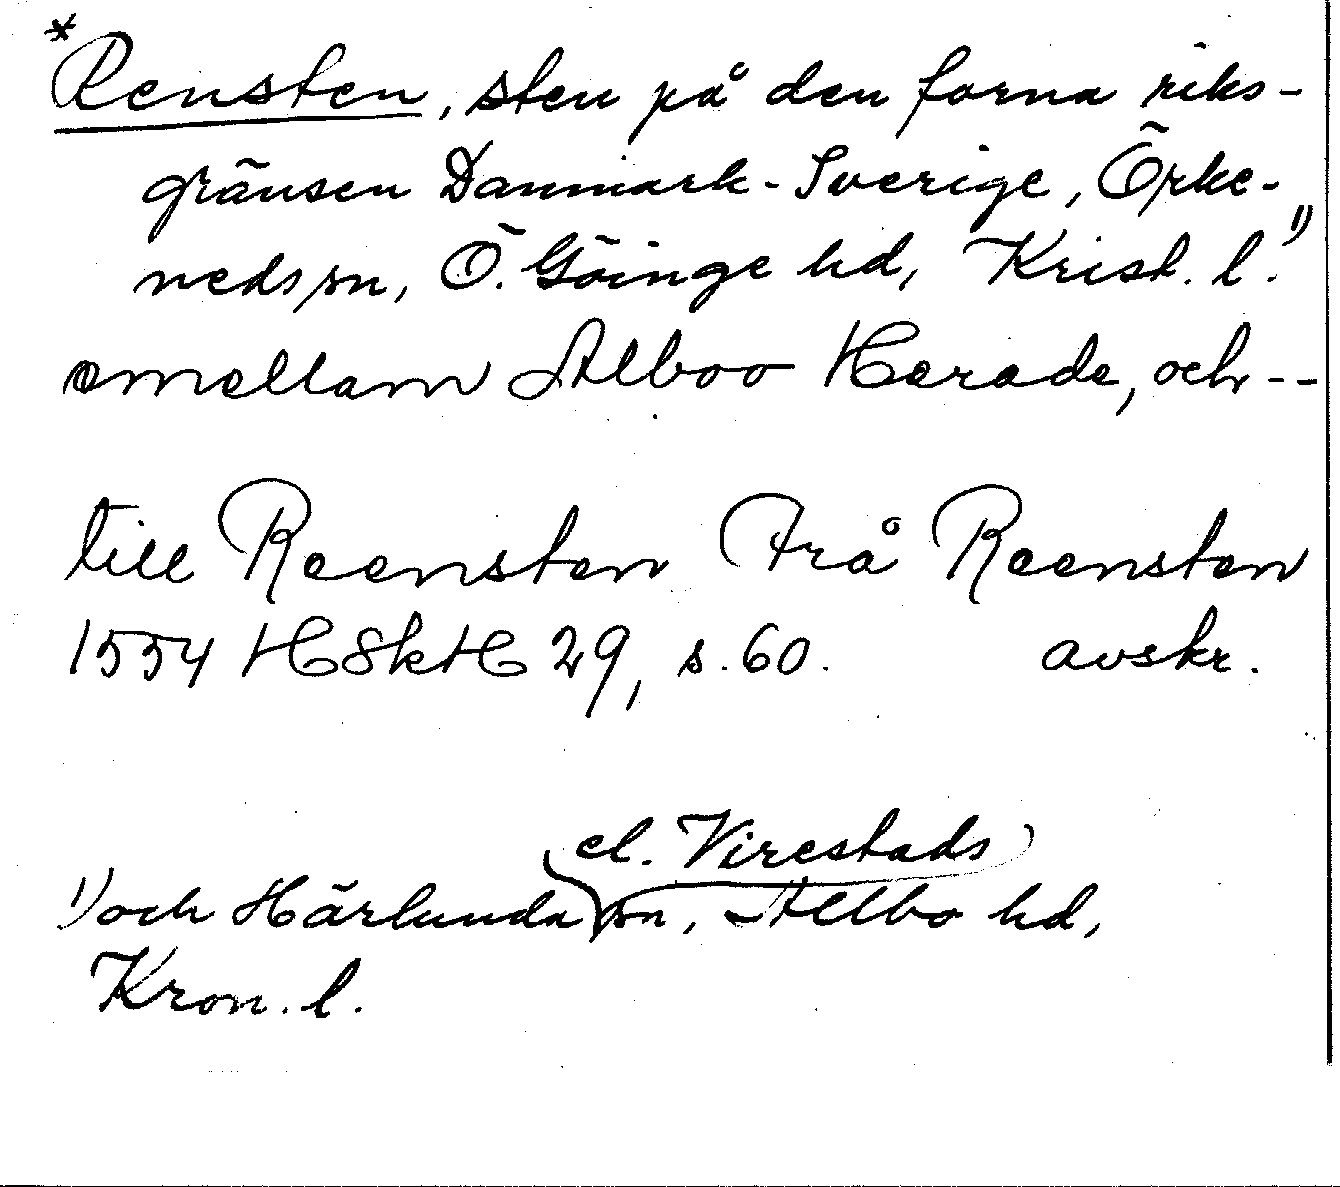 *Rensten, sten på den forna riks-
gränsen Danmark-Sverige, Örke-
neds sn, Ö. Göinge hd, Krist. l.¹⁾
emellam Alboo Herade, och --
till Reensten Frå Reensten
1554 HSkH 29, s. 60. avskr.
el. Virestads
¹⁾ och Härlunda sn, Allbo hd,
Kron. l.